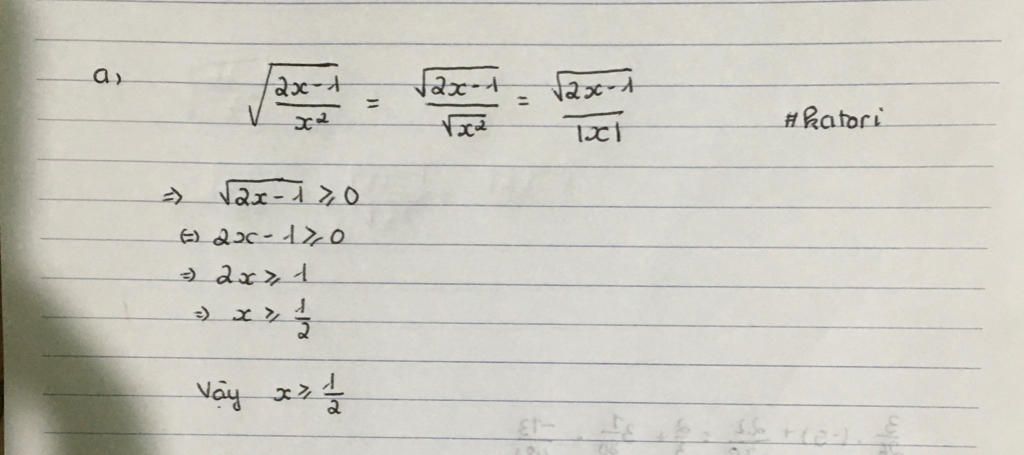 a, √((2x-1)/x²) = √(2x-1)/√(x²) = √(2x-1)/|x| #Katori
=> √(2x-1) ⩾ 0
(=) 2x-1 ⩾ 0
=> 2x ⩾ 1
=> x ⩾ 1/2
Vậy x ⩾ 1/2